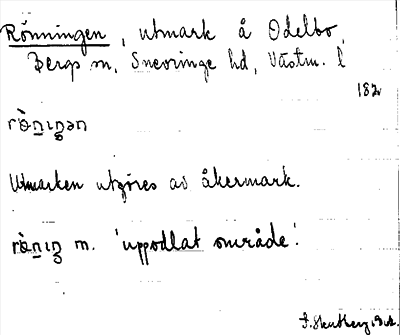 Rönningen, utmark å Odelbo,
Bergs sn, Snevringe hd, Västm. l
182
rö̀nıŋən
Utmarken utgöres av åkermark.
rö̀nıŋ m. 'uppodlat område'.